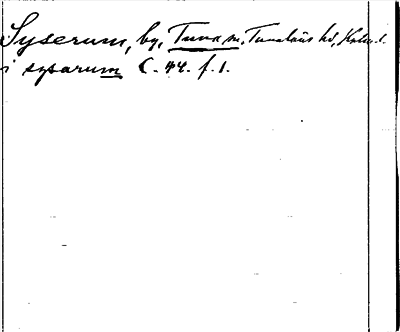 Syserum, by, Tuna sn, Tunaläns hd, Kalm. l.
i sysarum C. 44. f. 1.